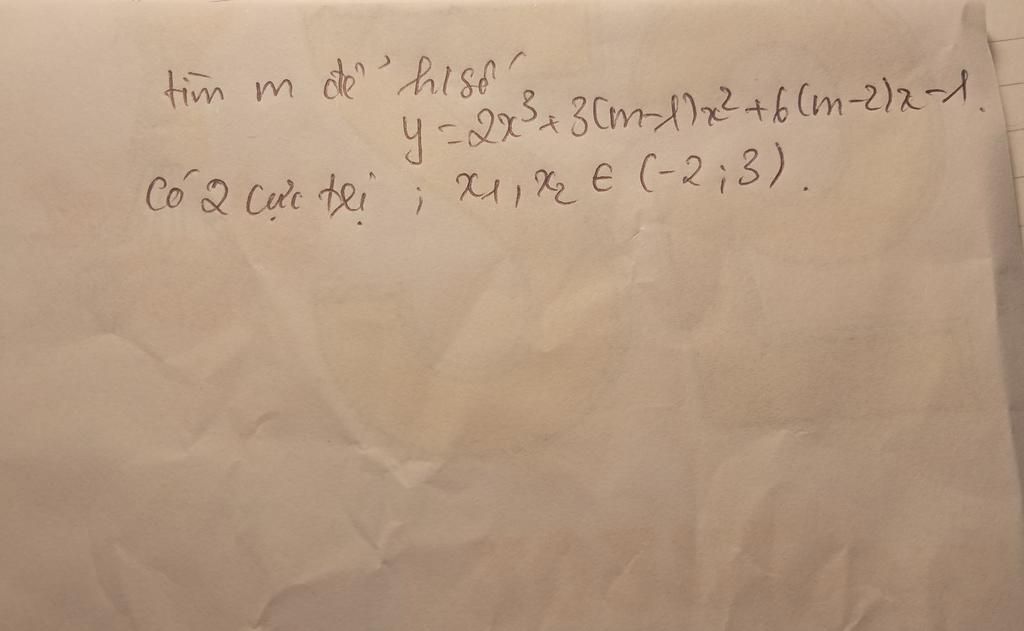 tìm m để h/số
y = 2x³ + 3(m-1)x² + 6(m-2)x - 1.
Có 2 cực trị ; x₁, x₂ ∈ (-2 ; 3).